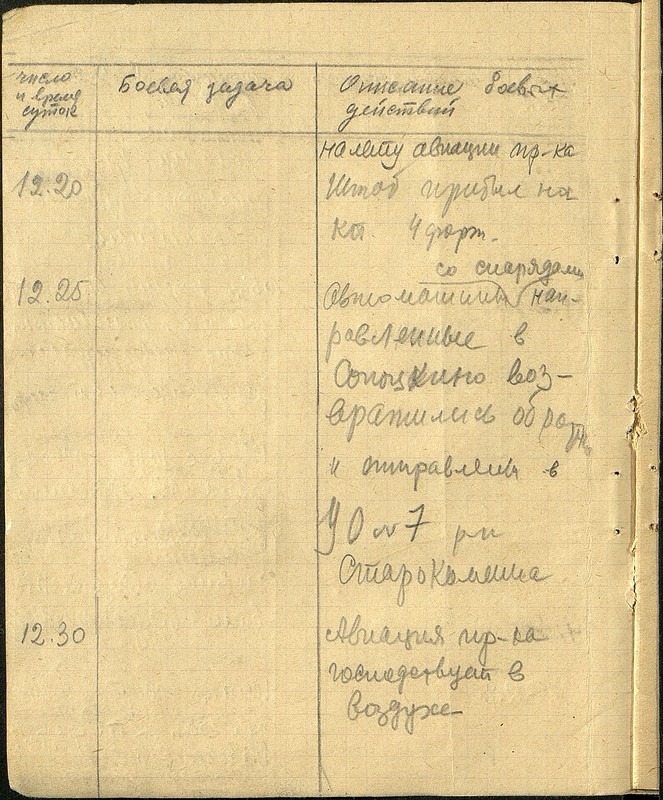 число
и время
суток
Боевая задача
Описание боевых
действий
налету авиации пр-ка
12.20
Штаб прибыл на
кп. 4 форт.
со снарядами
12.25
Автомашины нап-
равленные в
Сопоцкино воз-
вратились обратно
и отправлены в
УО № 7 рн
Старокаменка
12.30
Авиация пр-ка
господствует в
воздухе